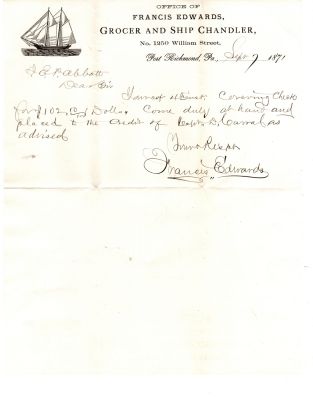 OFFICE OF
FRANCIS EDWARDS,
GROCER AND SHIP CHANDLER,
No. 1250 William Street,
Port Richmond, Pa., Sept 7 1871
Abbott
Dear Sir
Covering Check
for $102, Dollars Come duly at hand and
placed to the Credit of Capt D. as
advised
Yours Respt
Francis Edwards